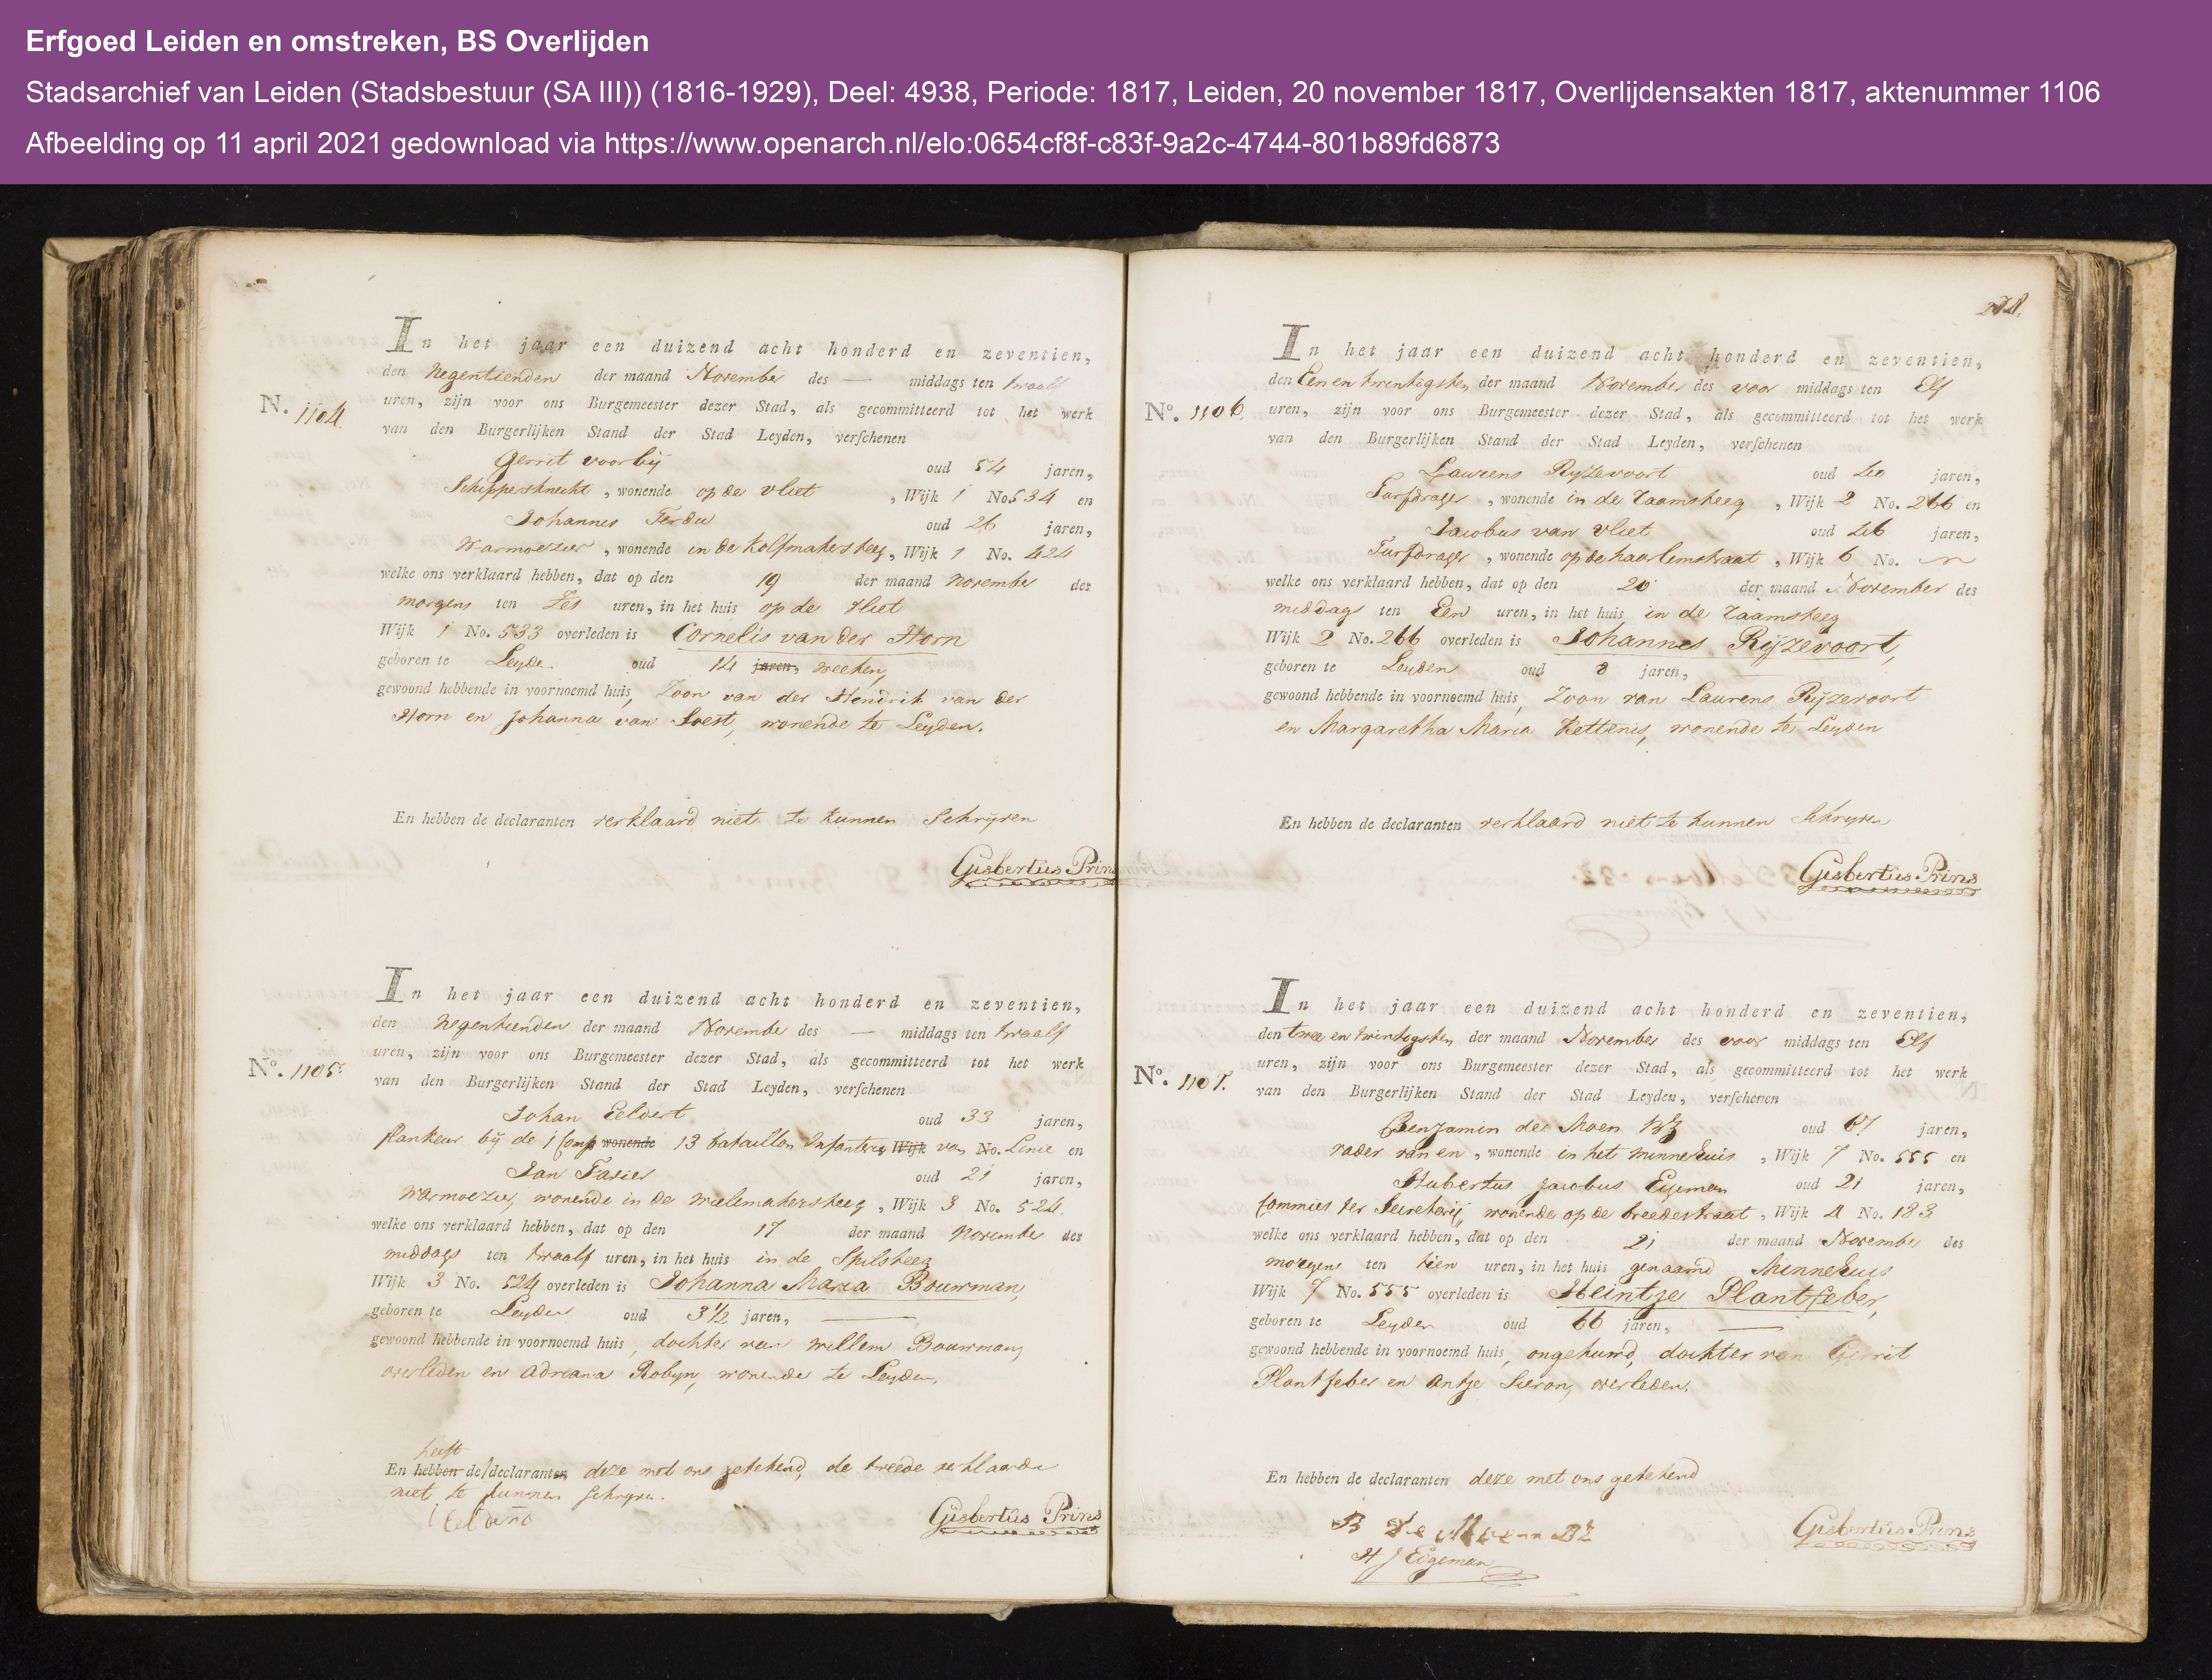 Erfgoed Leiden en omstreken, BS Overlijden
Stadsarchief van Leiden (Stadsbestuur (SA III)) (1816-1929), Deel: 4938, Periode: 1817, Leiden, 20 november 1817, Overlijdensakten 1817, aktenummer 1106
Afbeelding op 11 april 2021 gedownload via https://www.openarch.nl/elo:0654cf8f-c83f-9a2c-4744-801b89fd6873
N. 1104.
In het jaar een duizend acht honderd en zeventien,
den Negentienden der maand November des — middags ten twaalf
uren, zijn voor ons Burgemeester dezer Stad, als gecommitteerd tot het werk
van den Burgerlijken Stand der Stad Leyden, verschenen
Gerrit voorbij oud 54 jaren,
Schippersknecht, wonende op de vliet, Wijk 1 No. 534 en
Johannes Ferdu oud 26 jaren,
Warmoezier, wonende in de Kolfmakersteeg, Wijk 1 No. 424
welke ons verklaard hebben, dat op den 19 der maand November des
morgens ten Zes uren, in het huis op de vliet
Wijk 1 No. 533 overleden is Cornelis van der Horn
geboren te Leyden oud 14 jaren, weeken,
gewoond hebbende in voornoemd huis, Zoon van der Hendrik van der
Horn en Johanna van Soest, wonende te Leyden.
En hebben de declaranten verklaard niet te kunnen Schryven
Gisbertus Prins
No. 1105.
In het jaar een duizend acht honderd en zeventien,
den Negentienden der maand November des — middags ten twaalf
uren, zijn voor ons Burgemeester dezer Stad, als gecommitteerd tot het werk
van den Burgerlijken Stand der Stad Leyden, verschenen
Johan Eeldert oud 33 jaren,
flankeur bij de 1 Comp wonende 13 bataillon Infanterie Wijk van No. Linie en
Jan Favier oud 21 jaren,
Warmoezier, wonende in de Wielmakersteeg, Wijk 3 No. 524.
welke ons verklaard hebben, dat op den 17 der maand November des
middags ten twaalf uren, in het huis in de Spilsteeg
Wijk 3 No. 524 overleden is Johanna Maria Bouwman,
geboren te Leyden oud 3½ jaren,
gewoond hebbende in voornoemd huis, dochter van Willem Bouwman,
overleden en Adriana Robyn, wonende te Leyden.
heeft
En hebben de declaranten deze met ons getekend, de tweede verklaarde
niet te kunnen schryven.
Gisbertus Prins
No. 1106.
In het jaar een duizend acht honderd en zeventien,
den Een en twintigsten der maand November des voor middags ten Elf
uren, zijn voor ons Burgemeester dezer Stad, als gecommitteerd tot het werk
van den Burgerlijken Stand der Stad Leyden, verschenen
Laurens Ryzevoort oud 40 jaren,
Turfdrager, wonende in de Raamsteeg, Wijk 2 No. 266 en
Jacobus van Vliet oud 46 jaren,
Turfdrager, wonende op de haarlemstraat, Wijk 6 No.
welke ons verklaard hebben, dat op den 20 der maand November des
middags ten Een uren, in het huis in de Raamsteeg
Wijk 2 No. 266 overleden is Johannes Ryzevoort,
geboren te Leyden oud 8 jaren,
gewoond hebbende in voornoemd huis, Zoon van Laurens Ryzevoort
en Margaretha Maria Kettenis, wonende te Leyden
En hebben de declaranten verklaard niet te kunnen Schryven
Gisbertus Prins
No. 1107.
In het jaar een duizend acht honderd en zeventien,
den twee en twintigsten der maand November des voor middags ten Elf
uren, zijn voor ons Burgemeester dezer Stad, als gecommitteerd tot het werk
van den Burgerlijken Stand der Stad Leyden, verschenen
Benjamin de Moen BZ oud 67 jaren,
vader van en, wonende in het Minnehuis, Wijk 7 No. 555 en
Hubertus Jacobus Eigeman oud 21 jaren,
Commies ter Secretarij, wonende op de breedestraat, Wijk 4 No. 183
welke ons verklaard hebben, dat op den 21 der maand November des
morgens ten tien uren, in het huis genaamd Minnehuis
Wijk 7 No. 555 overleden is Heintje Plantfeber,
geboren te Leyden oud 66 jaren,
gewoond hebbende in voornoemd huis, ongehuwd, dochter van Gerrit
Plantfeber en Antje Sieron, overleden.
En hebben de declaranten deze met ons getekend
B De Moen BZ
H J Eigeman
Gisbertus Prins